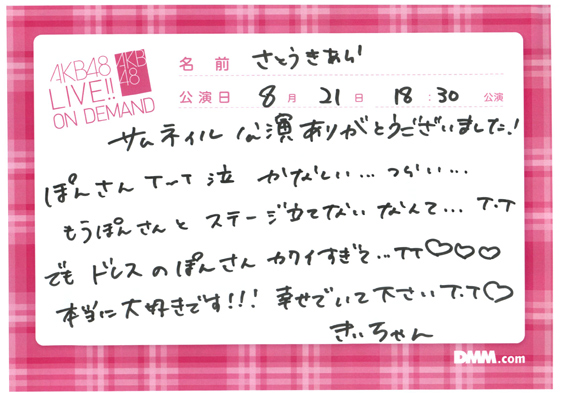 AKB48
LIVE!!
ON DEMAND
AKB
48
名前 さとうきあら
公演日 8月 21日 18:30 公演
サムネイル公演ありがとうございました!
ぽんさんT~T泣 かなしい… つらい…
もうぽんさんと ステージ立てないなんて… T.T
でも ドレスのぽんさん カワイすぎて…TT♡♡♡
本当に大好きです!!! 幸せでいて下さいT.T♡
きぃちゃん
DMM.com